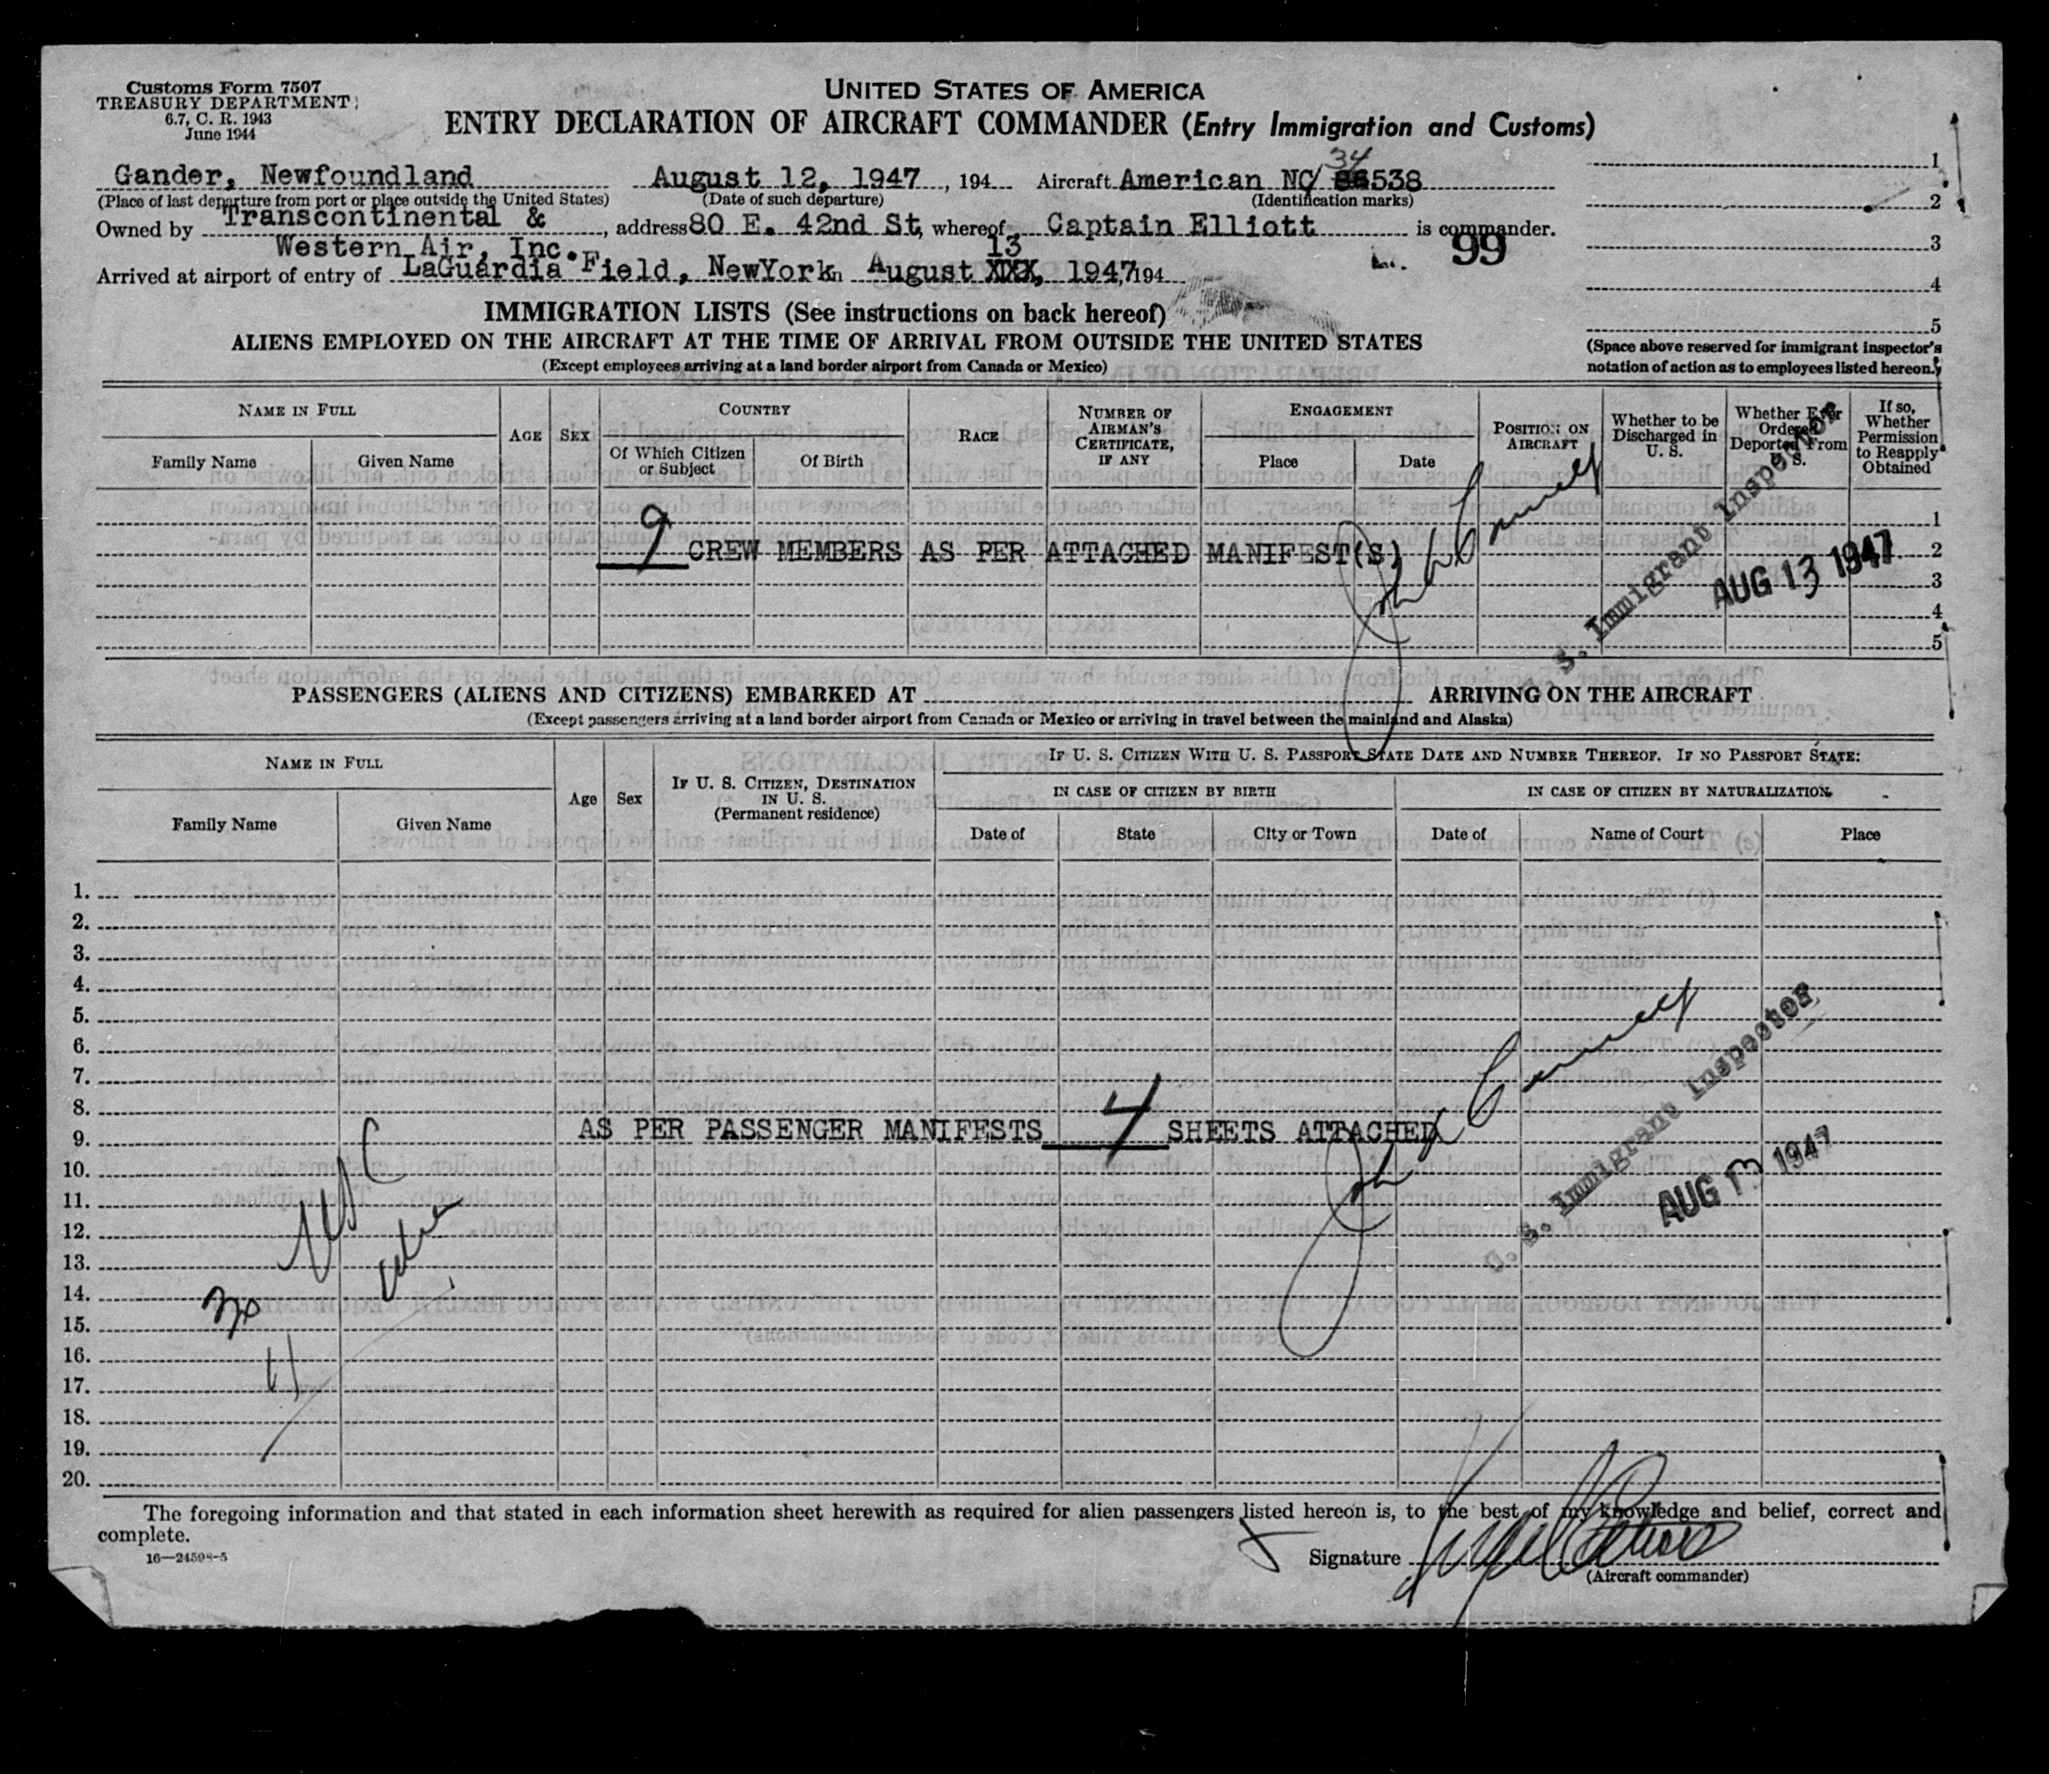 Customs Form 7507
TREASURY DEPARTMENT
6.7, C. R. 1943
June 1944
UNITED STATES OF AMERICA
ENTRY DECLARATION OF AIRCRAFT COMMANDER (Entry Immigration and Customs)
Gander, Newfoundland August 12, 1947, 194 Aircraft American NC 34 538
(Place of last departure from port or place outside the United States) (Date of such departure) (Identification marks)
Owned by Transcontinental & Western Air, Inc., address 80 E. 42nd St, whereof Captain Elliott is commander.
99
Arrived at airport of entry of LaGuardia Field, NewYork on August 13 XXX, 1947, 194
1
2
3
4
5
(Space above reserved for immigrant inspector's
notation of action as to employees listed hereon.)
IMMIGRATION LISTS (See instructions on back hereof)
ALIENS EMPLOYED ON THE AIRCRAFT AT THE TIME OF ARRIVAL FROM OUTSIDE THE UNITED STATES
(Except employees arriving at a land border airport from Canada or Mexico)
NAME IN FULL
Family Name
Given Name
AGE
SEX
COUNTRY
Of Which Citizen or Subject
Of Birth
RACE
NUMBER OF AIRMAN'S CERTIFICATE, IF ANY
ENGAGEMENT
Place
Date
POSITION ON AIRCRAFT
Whether to be Discharged in U. S.
Whether Ever Ordered Deported From U. S.
If so, Whether Permission to Reapply Obtained
1
9 CREW MEMBERS AS PER ATTACHED MANIFEST(S) 2
3
4
5
U. S. Immigrant Inspector
AUG 13 1947
PASSENGERS (ALIENS AND CITIZENS) EMBARKED AT ARRIVING ON THE AIRCRAFT
(Except passengers arriving at a land border airport from Canada or Mexico or arriving in travel between the mainland and Alaska)
NAME IN FULL
Family Name
Given Name
Age
Sex
IF U. S. CITIZEN, DESTINATION IN U. S.
(Permanent residence)
IF U. S. CITIZEN WITH U. S. PASSPORT STATE DATE AND NUMBER THEREOF. IF NO PASSPORT STATE:
IN CASE OF CITIZEN BY BIRTH
IN CASE OF CITIZEN BY NATURALIZATION
Date of
State
City or Town
Date of
Name of Court
Place
1.
2.
3.
4.
5.
6.
7.
8.
9. AS PER PASSENGER MANIFESTS 4 SHEETS ATTACHED
10.
11.
12.
13.
14.
15.
16.
17.
18.
19.
20.
U. S. Immigrant Inspector
AUG 13 1947
The foregoing information and that stated in each information sheet herewith as required for alien passengers listed hereon is, to the best of my knowledge and belief, correct and
complete.
16—24598-5
Signature
(Aircraft commander)